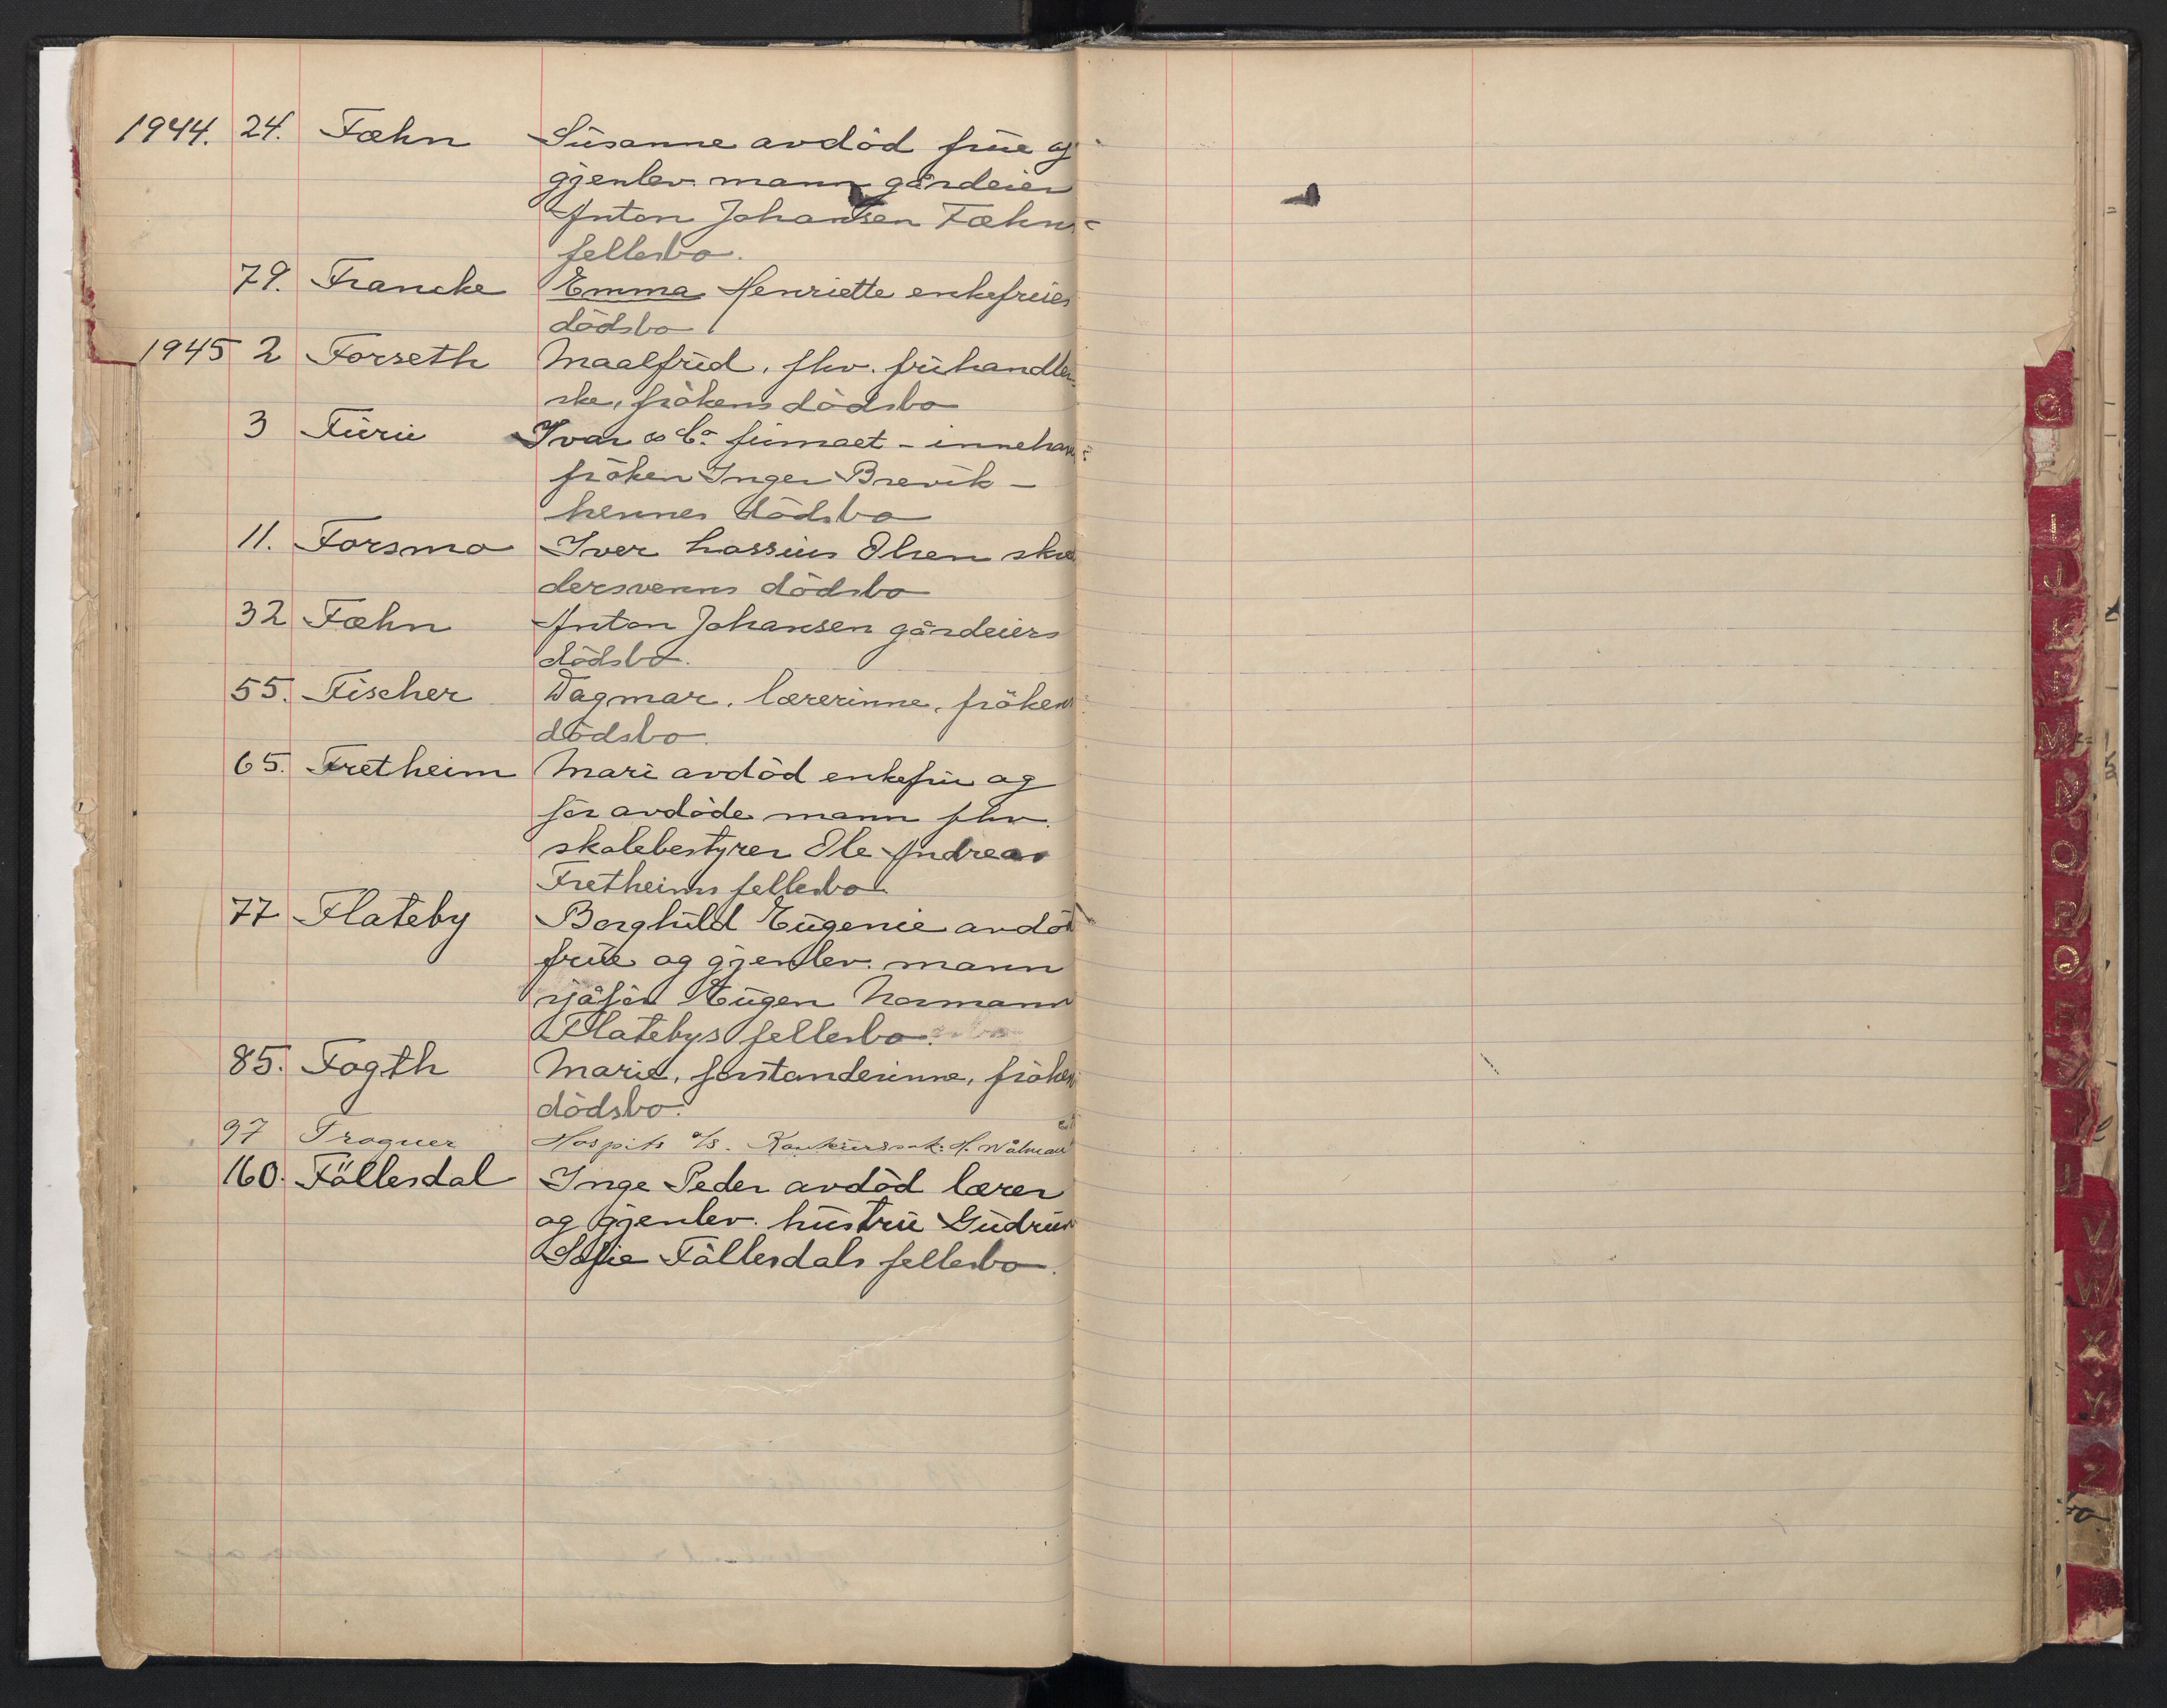 1944. 24. Fæhn Susanne avdöd frue og
gjenlev. mann gårdeier
Anton Johansen Fæhns
fellesbo.
79. Francke Emma Henriette enkefrues
dödsbo
1945 2 Forseth Maalfrid, fhv. frihandler
ske, frökens dödsbo
3 Furu Ivar & Co firmaet - innehav
fröken Inger Brevik -
hennes dödsbo
11. Forsmo Iver Lassius Olsen skræ
dersvenns dödsbo
32 Fæhn Anton Johansen gårdeiers
dödsbo.
55. Fischer Dagmar, lærerinne, fröken
dödsbo.
65. Fretheim Mari avdöd enkefru og
för avdöde mann fhv.
skolebestyrer Ole Andreas
Fretheims fellesbo
77 Flateby Borghild Eugenie avdöd
frue og gjenlev. mann
sjåför Eugen Normann
Flatebys fellesbo.
85. Fogth Marie, forstanderinne, fröken
dödsbo.
97 Frogner Hospits a/s. Konkurssak:
160. Föllesdal Inge Peder avdöd lærer
og gjenlev. hustru Gudrun
Sofie Föllesdals fellesbo.
G
I
J
K
M
N
O
P
Q
R
V
W
X
Y
Z